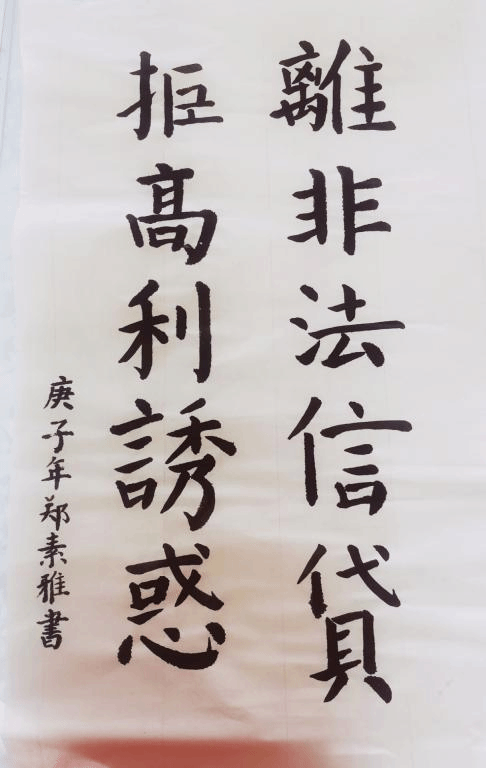 離非法信貸
拒高利誘惑
庚子年郑素雅書